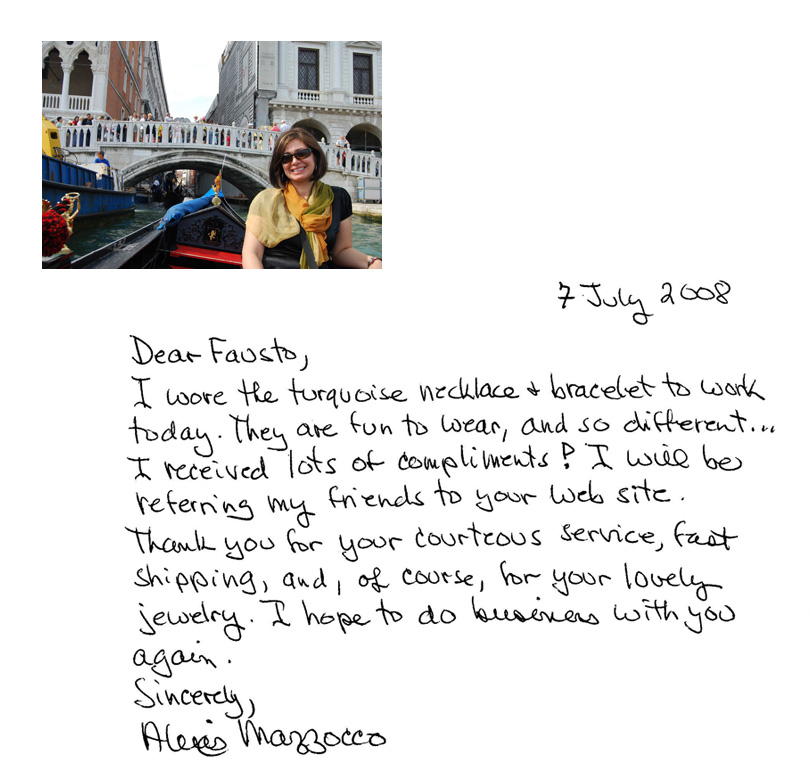 7 July 2008
Dear Fausto,
I wore the turquoise necklace & bracelet to work
today. They are fun to wear, and so different...
I received lots of compliments! I will be
referring my friends to your web site.
Thank you for your courteous service, fast
shipping, and, of course, for your lovely
jewelry. I hope to do business with you
again.
Sincerely,
Alexis Mazzocco